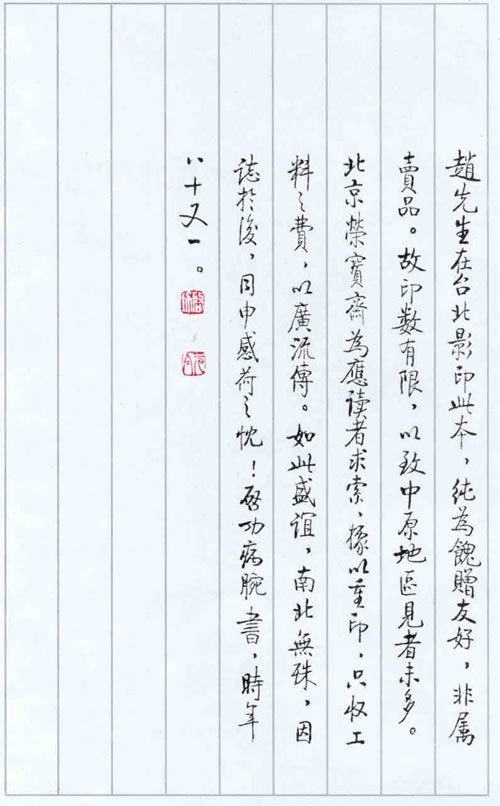 趙先生在台北影印此本，純為餽贈友好，非属
賣品。故印数有限，以致中原地區見者未多。
北京榮寳齋為應读者求索，據以重印，只收工
料之費，以廣流傳。如此盛誼，南北無殊，因
誌於後，同申感荷之忱！啓功病腕書，時年
八十又一。